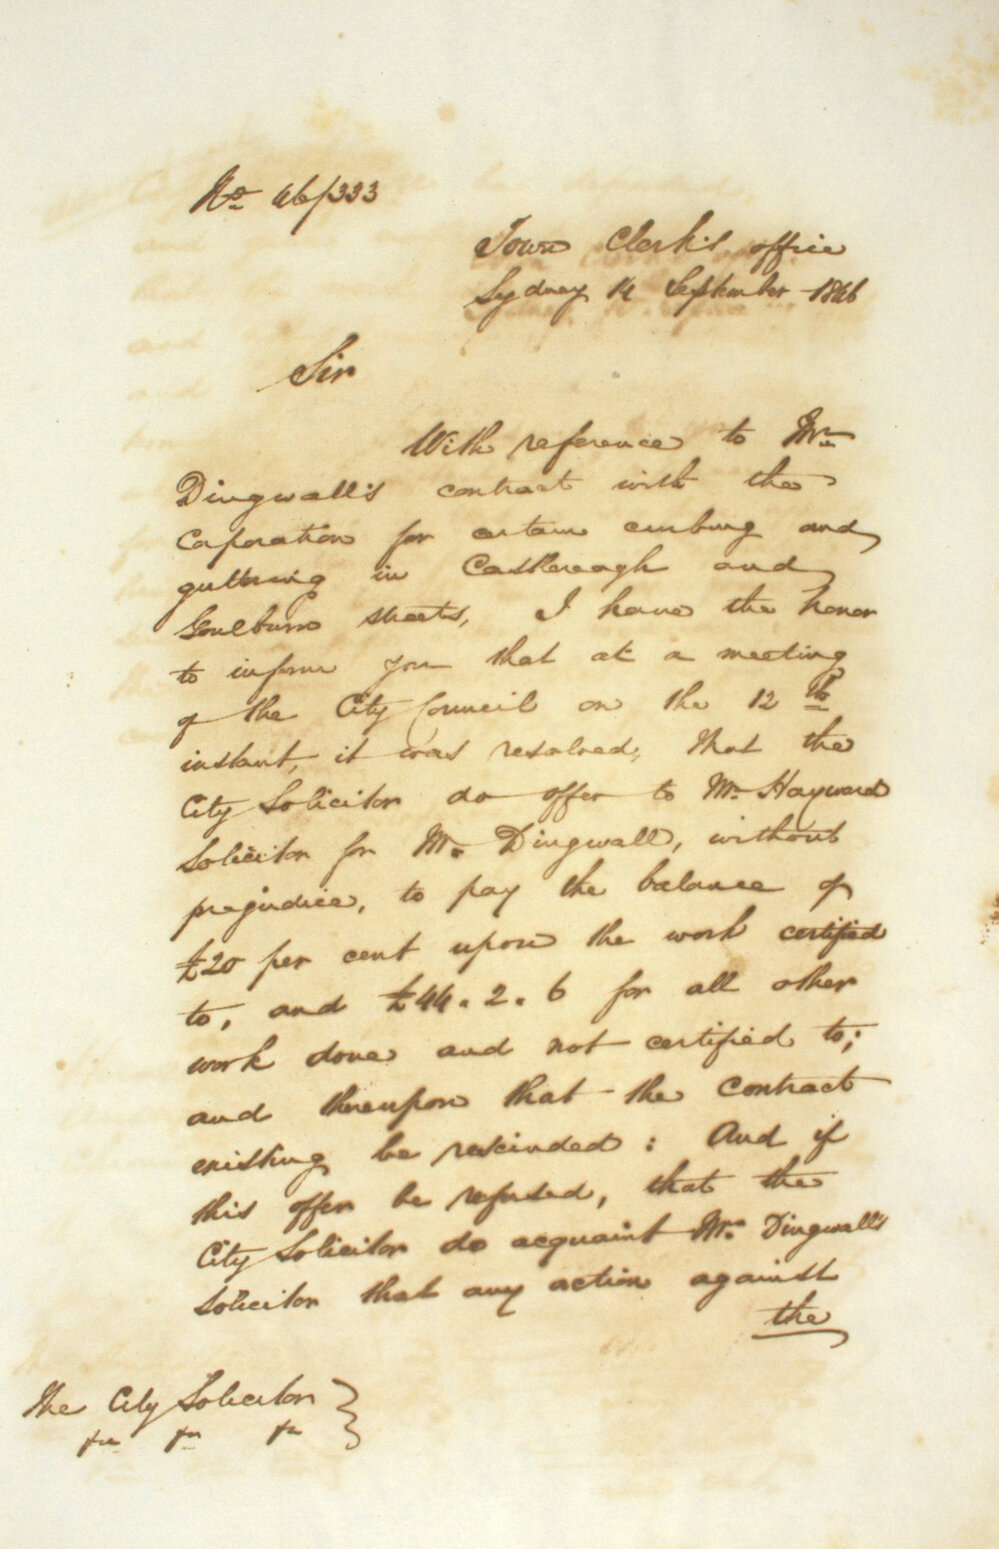 No. 46/333
Town Clerk's office
Sydney 14 September 1846
Sir
With reference to Mr.
Dingwall's contract with the
Corporation for certain curbing and
guttering in Castlereagh and
Goulburn streets, I have the honor
to inform you that at a meeting
of the City Council on the 12th
instant, it was resolved, that the
City Solicitor do offer to Mr. Hayward
Solicitor for Mr. Dingwall, without
prejudice, to pay the balance of
£20 per cent upon the work certified
to, and £44.2.6 for all other
work done and not certified to;
and thereupon that the contract
existing be rescinded: And if
this offer be refused, that the
City Solicitor do acquaint Mr. Dingwall's
Solicitor that any action against
the
The City Solicitor